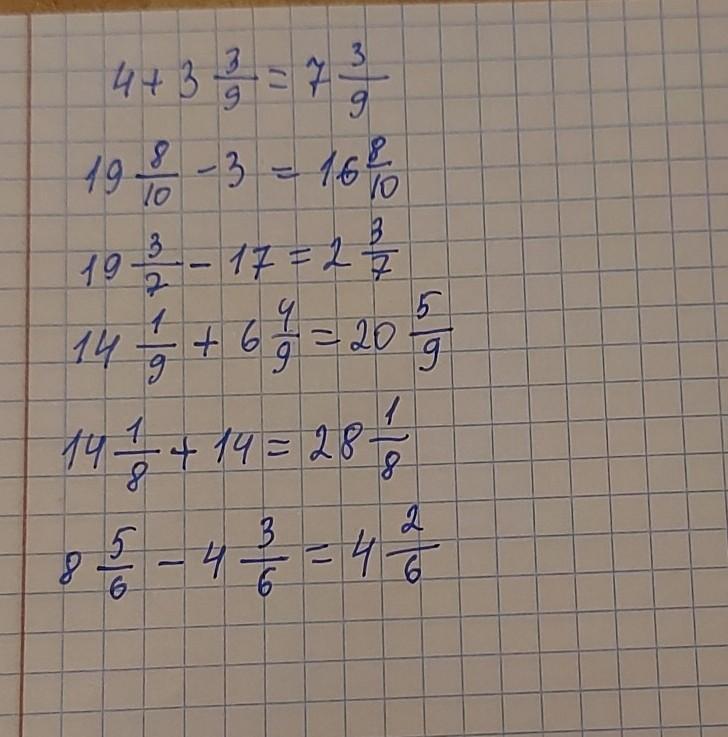 4 + 3 3/9 = 7 3/9
19 8/10 - 3 = 16 8/10
19 3/7 - 17 = 2 3/7
14 1/9 + 6 4/9 = 20 5/9
14 1/8 + 14 = 28 1/8
8 5/6 - 4 3/6 = 4 2/6